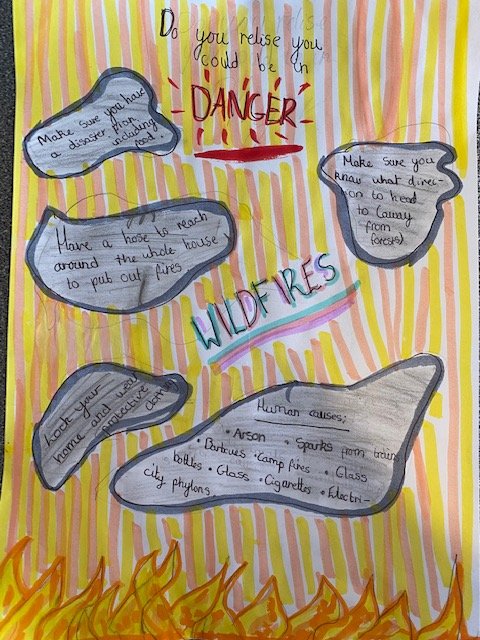 Do you relise you
could be in
DANGER
Make sure you have
a disaster plan
including
food
Make sure you
know what direc-
tion to head
to (away
from
forests)
Have a hose to reach
around the whole house
to put out fires
WILDFIRES
Lock your
home and wear
protective
clothes
Human causes;
• Arson • Sparks from train
• Barbcues • Camp fires • Glass
bottles • Glass • Cigarettes • Electri-
city phylons